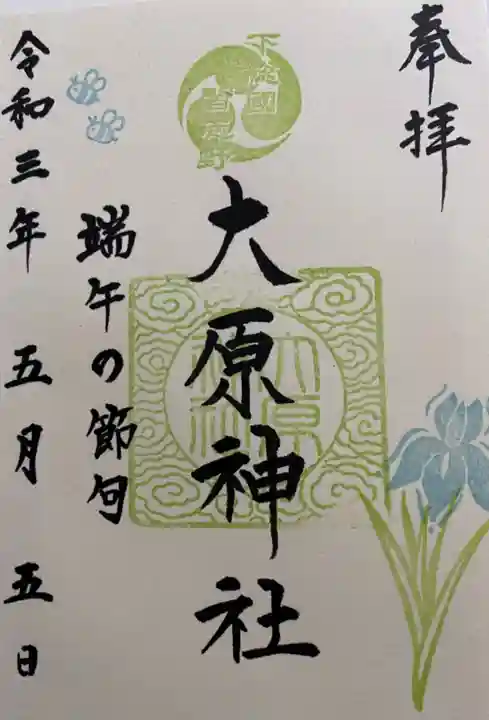 奉拝
下総國
大原神社
大原神社
端午の節句
令和三年 五月 五日